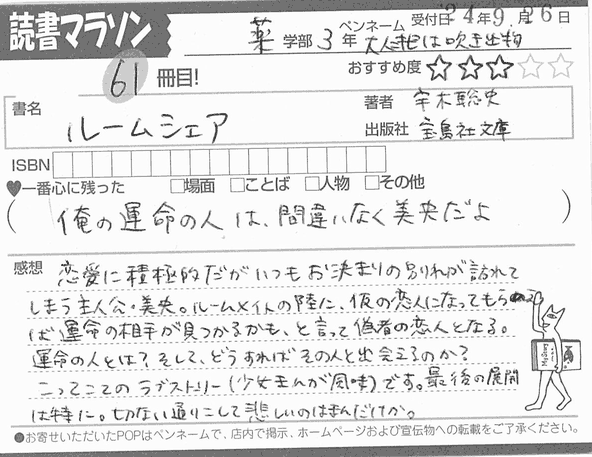 読書マラソン
受付日 '24年9月26日
薬学部3年 ペンネーム 大人紀は吹き出物
61冊目!
おすすめ度 ★★★☆☆
書名 ルームシェア
著者 宇木聡史
出版社 宝島社文庫
ISBN
♥一番心に残った □場面 □ことば □人物 □その他
(俺の運命の人は、間違いなく美央だよ)
感想 恋愛に積極的だがいつもお決まりの別れが訪れて
しまう主人公・美央。ルームメイトの陸に、仮の恋人になってもらえ
ば運命の相手が見つかるかも、と言って偽者の恋人となる。
運命の人とは?そして、どうすればその人と出会えるのか?
こってこてのラブストーリー(少女まんが風味)です。最後の展開
は特に。切ない通りこして悲しいのはまんだけか。
●お寄せいただいたPOPはペンネームで、店内で掲示、ホームページおよび宣伝物への転載をご了承ください。